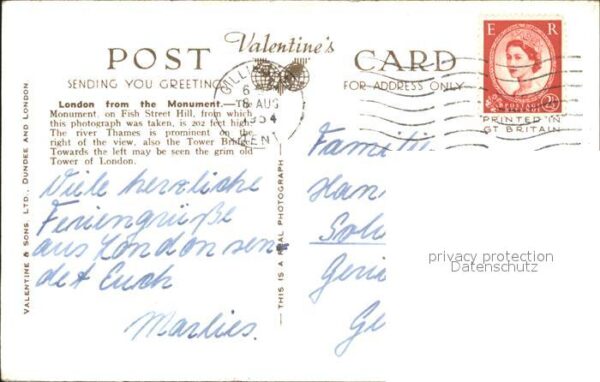 POST Valentine's CARD
SENDING YOU GREETING
FOR ADDRESS ONLY
E R
POSTAGE
2½
PRINTED IN
GT BRITAIN
GILLI
6
18 AUG
1954
KENT
London from the Monument.—The
Monument, on Fish Street Hill, from which
this photograph was taken, is 202 feet high.
The river Thames is prominent on the
right of the view, also the Tower Bridge.
Towards the left may be seen the grim old
Tower of London.
VALENTINE & SONS, LTD., DUNDEE AND LONDON
THIS IS A REAL PHOTOGRAPH
Viele herzliche
Feriengrüße
aus London sen
det Euch
Marlies.
Famili
Han
Geri
Ge
privacy protection
Datenschutz